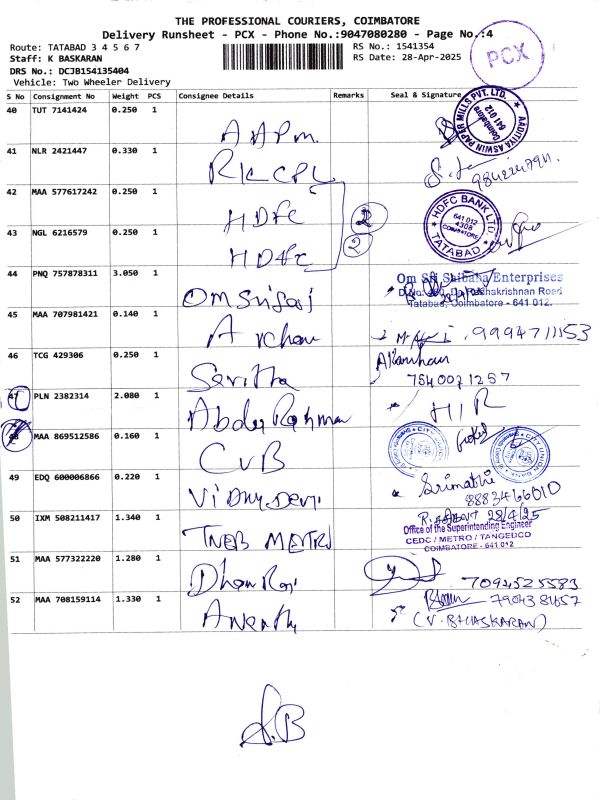 THE PROFESSIONAL COURIERS, COIMBATORE
Delivery Runsheet - PCX - Phone No.:9047080280 - Page No.:4
Route: TATABAD 3 4 5 6 7
Staff: K BASKARAN
DRS No.: DCJB154135404
Vehicle: Two Wheeler Delivery
RS No.: 1541354
RS Date: 28-Apr-2025
PCX
S No Consignment No Weight PCS Consignee Details Remarks Seal & Signature
40 TUT 7141424 0.250 1 AAPM
AADITYA ASWIN PAPER MILLS PVT. LTD. Coimbatore 012
41 NLR 2421447 0.330 1 RKCPL
9842247911
42 MAA 577617242 0.250 1 HDFC 2
HDFC BANK LTD 641 012 4308 COIMBATORE TATABAD
43 NGL 6216579 0.250 1 HDFC 2
44 PNQ 757878311 3.050 1 Omsrisai
Om Sri Shibana Enterprises
Radhakrishnan Road
Tatabad, Coimbatore - 641 012.
45 MAA 707981421 0.140 1 Archan
9994711153
46 TCG 429306 0.250 1 Saritha
7540071257
47 PLN 2382314 2.080 1 Abdur Rahman
H/R
48 MAA 869512586 0.160 1 CUB
CITY UNION BANK
49 EDQ 600006866 0.220 1 Vidhya Devi
Srimathi
8883466010
50 IXM 508211417 1.340 1 TNEB METRO
28/4/25
Office of the Superintending Engineer
CEDC / METRO / TANGEDCO
COIMBATORE - 641 012
51 MAA 577322220 1.280 1 Dhan Raj
7094525583
52 MAA 708159114 1.330 1 Ananth
7904381657
(V. BHASKARAN)